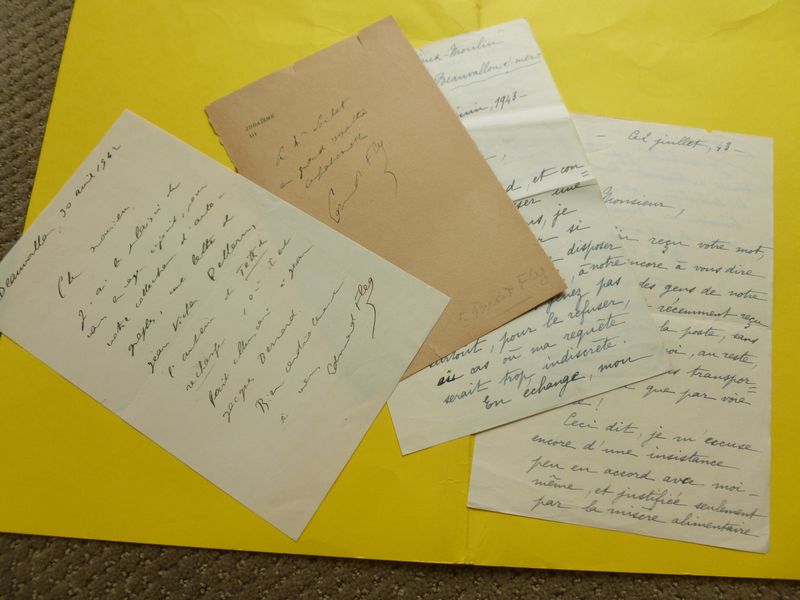 Beauvallon, 30 avril 1942
Cher monsieur,
J'ai le plaisir de
vous envoyer ci-joint, pour
votre collection d'auto-
graphes, une lettre de
Jean-Victor Pellerin,
l'auteur de Têtes de
rechange
Jacques Bernard.
Bien cordialement
à vous,
Edmond Fleg
JUDAÏSME
III
en grand
Edmond Fleg
Edmond Fleg
eux-Moulin"
Beauvallon s/-mer-
juin, 1943-
d, et con
ser une=
us, je
si
disposer
, à notre
nez pas
surtout, pour le refuser,
au cas où ma requête
serait trop indiscrète.
En échange, mon
- Ce 2 juillet, 43 -
Monsieur,
reçu votre mot,
encore à vous dire
des gens de notre
récemment reçu
la poste, sans
oi, au reste,
us transpor=
que par voie
!
Ceci dit, je m'excuse
encore d'une insistance
peu en accord avec moi-
même, et justifiée seulement
par la misère alimentaire